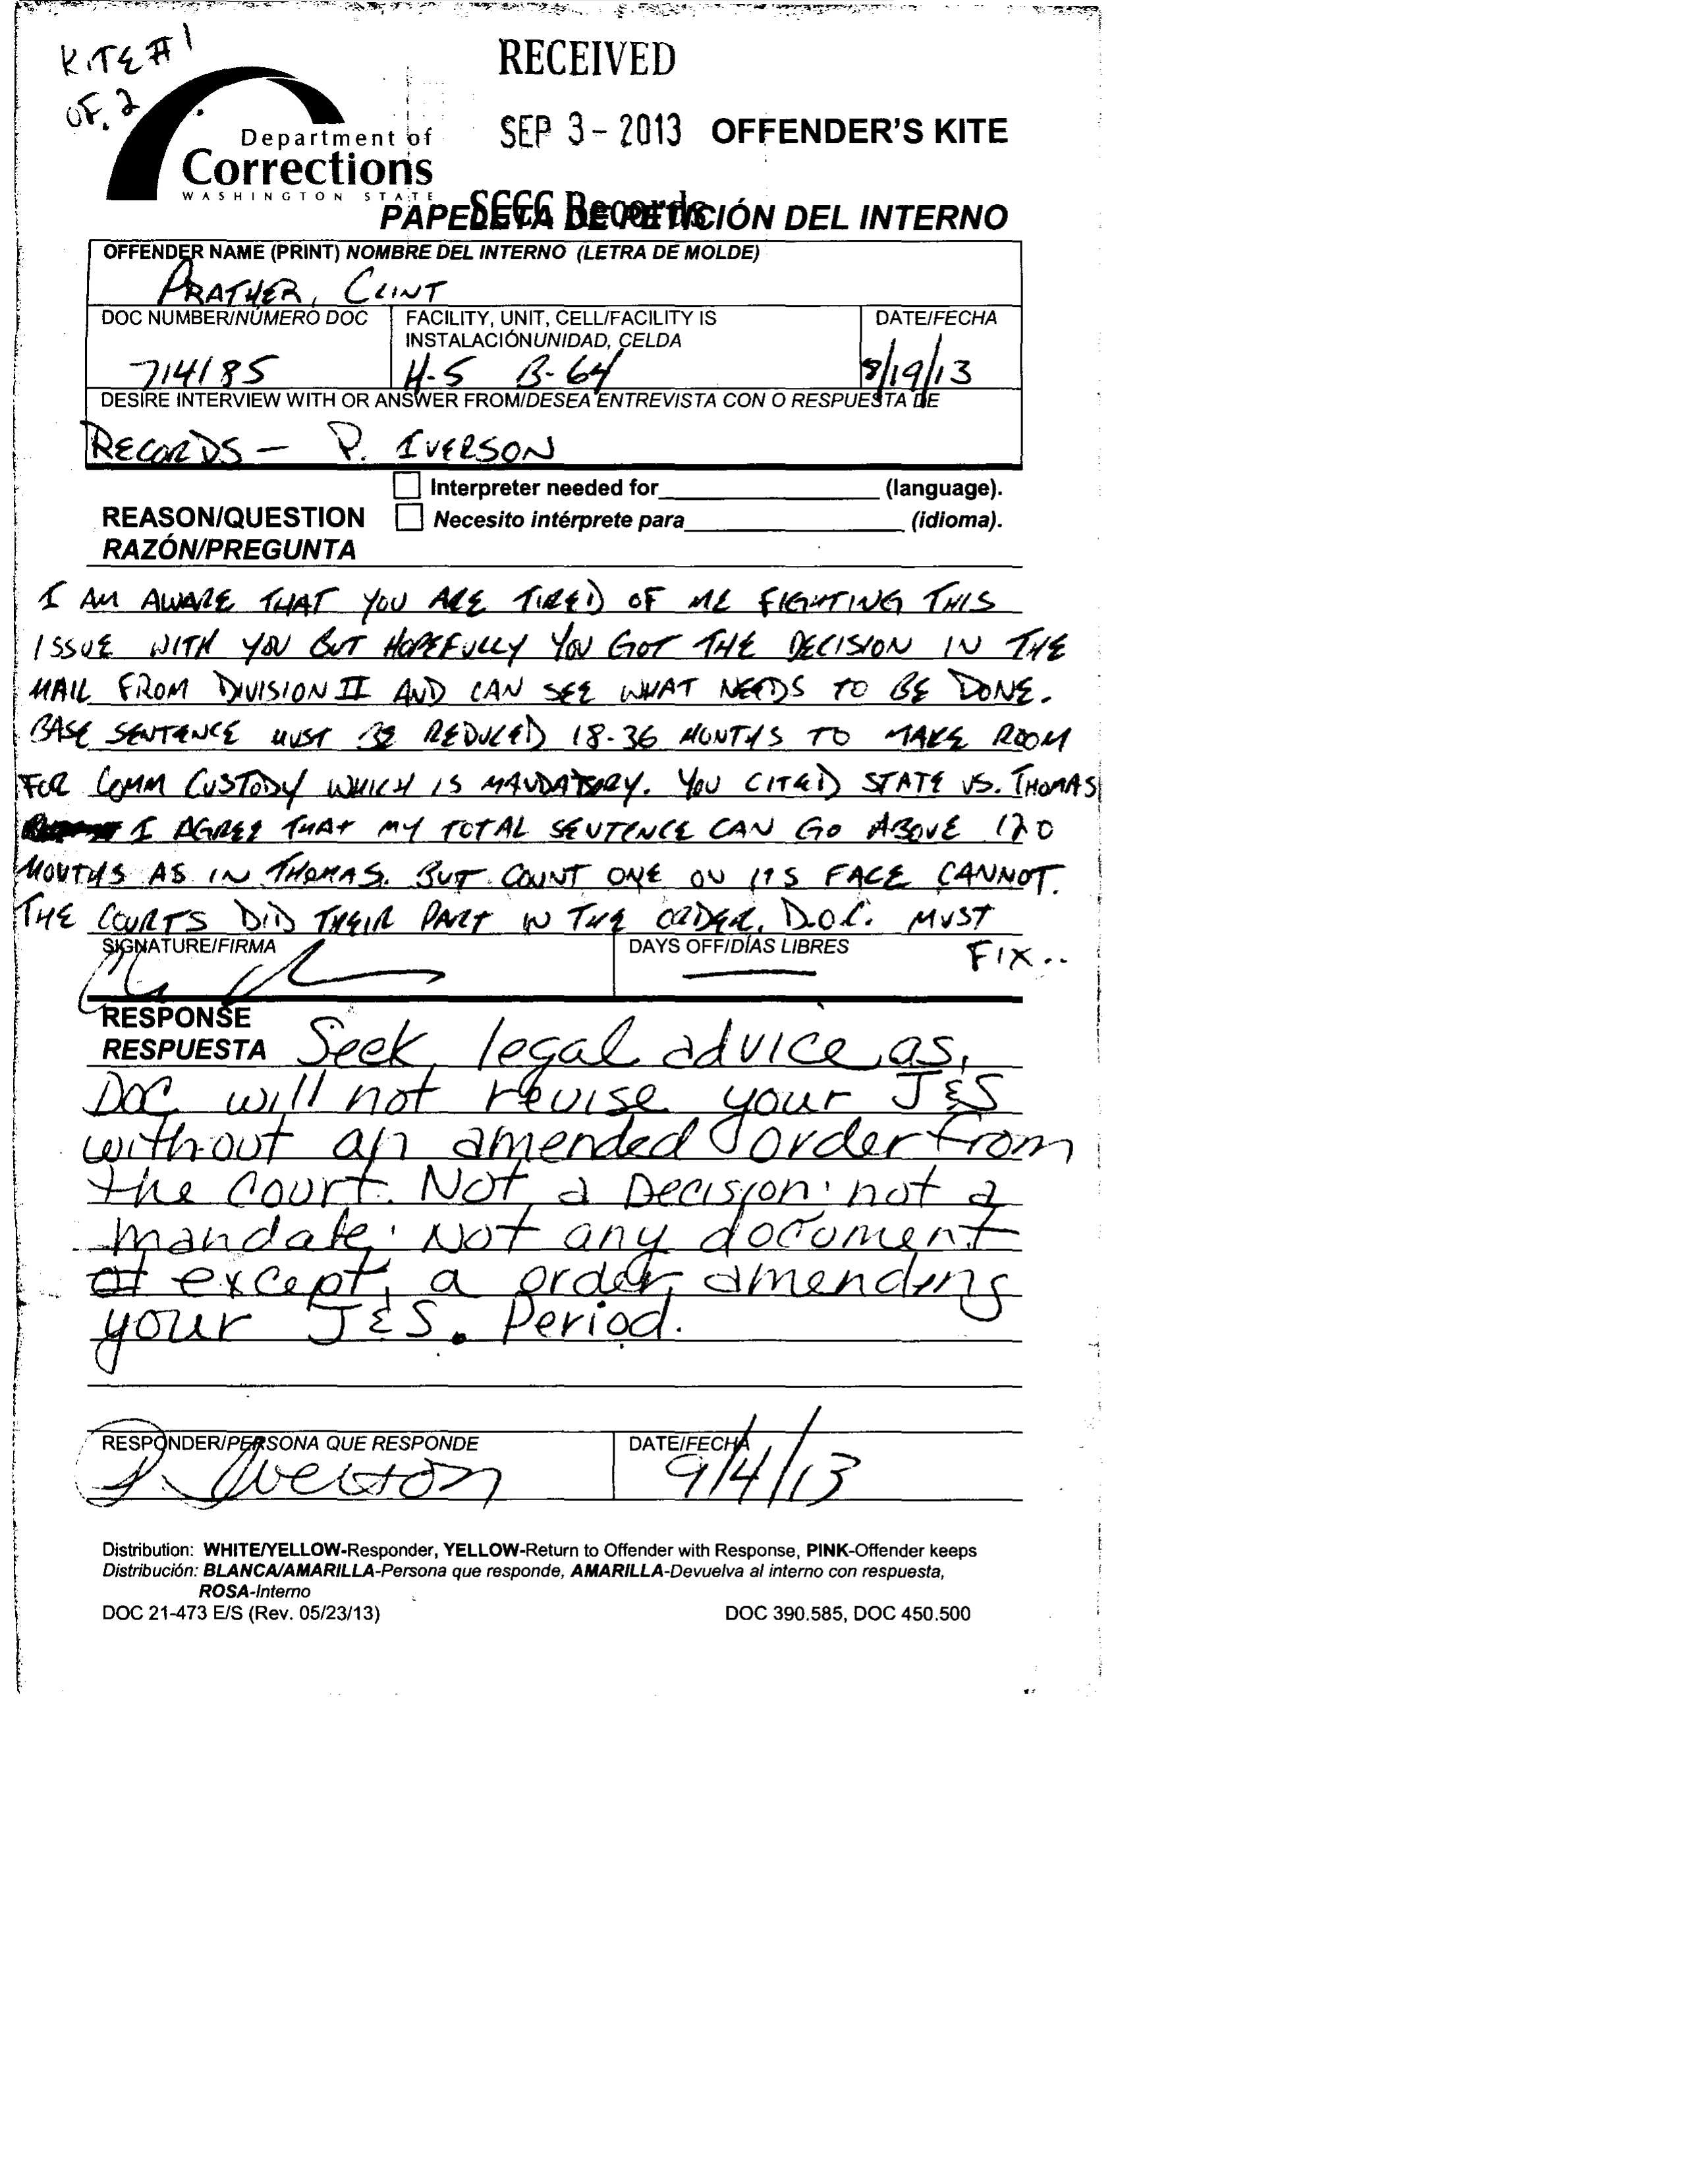 KITE #1
OF. 2
RECEIVED
SEP 3 - 2013 OFFENDER'S KITE
Department of
Corrections
WASHINGTON STATE
SCCC Records
PAPELETA DE PETICIÓN DEL INTERNO
OFFENDER NAME (PRINT) NOMBRE DEL INTERNO (LETRA DE MOLDE)
PRATHER, CLINT
DOC NUMBER/NÚMERO DOC FACILITY, UNIT, CELL/FACILITY IS DATE/FECHA
INSTALACIÓNUNIDAD, CELDA
714185 H-5 B-64 8/19/13
DESIRE INTERVIEW WITH OR ANSWER FROM/DESEA ENTREVISTA CON O RESPUESTA DE
RECORDS - P. IVERSON
Interpreter needed for (language).
REASON/QUESTION Necesito intérprete para (idioma).
RAZÓN/PREGUNTA
I AM AWARE THAT YOU ARE TIRED OF ME FIGHTING THIS
ISSUE WITH YOU BUT HOPEFULLY YOU GOT THE DECISION IN THE
MAIL FROM DIVISION II AND CAN SEE WHAT NEEDS TO BE DONE.
BASE SENTENCE MUST BE REDUCED 18-36 MONTHS TO MAKE ROOM
FOR COMM CUSTODY WHICH IS MANDATORY. YOU CITED STATE VS. THOMAS
I AGREE THAT MY TOTAL SENTENCE CAN GO ABOVE 120
MONTHS AS IN THOMAS. BUT COUNT ONE ON ITS FACE CANNOT.
THE COURTS DID THEIR PART IN THE ORDER. D.O.C. MUST
FIX..
SIGNATURE/FIRMA DAYS OFF/DÍAS LIBRES
RESPONSE
RESPUESTA Seek legal advice as,
DOC will not revise your J&S
without an amended order from
the court. Not a Decision: not a
mandate: Not any document
of except, a order amending
your J&S. Period.
RESPONDER/PERSONA QUE RESPONDE DATE/FECHA
P. Iverson 9/4/13
Distribution: WHITE/YELLOW-Responder, YELLOW-Return to Offender with Response, PINK-Offender keeps
Distribución: BLANCA/AMARILLA-Persona que responde, AMARILLA-Devuelva al interno con respuesta,
ROSA-Interno
DOC 21-473 E/S (Rev. 05/23/13) DOC 390.585, DOC 450.500